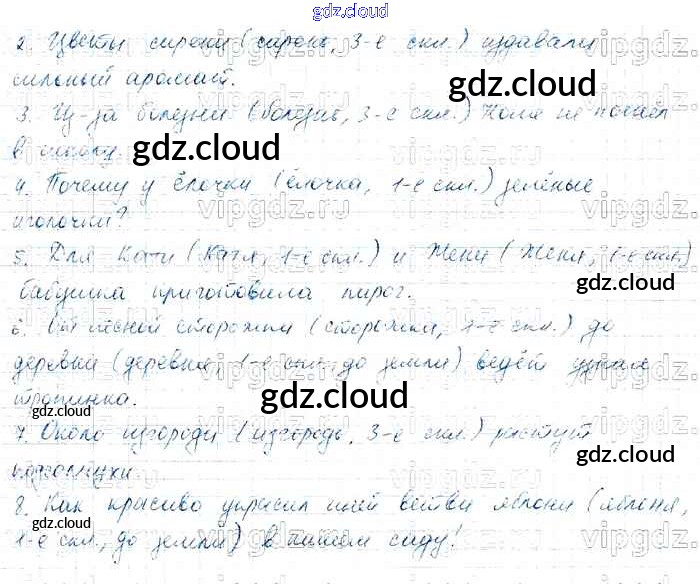 gdz.cloud
2. Цветы сирени (сирень, 3-е скл.) издавали
сильный аромат.
3. Из-за болезни (болезнь, 3-е скл.) Коля не пошёл
в школу.
4. Почему у ёлочки (ёлочка, 1-е скл.) зелёные
иголочки?
5. Для Кати (Катя, 1-е скл.) и Жени (Женя, 1-е скл.)
бабушка приготовила пирог.
6. От лесной сторожки (сторожка, 1-е скл.) до
деревни (деревня, 1-е скл., до земли) ведёт узкая
тропинка.
7. Около изгороди (изгородь, 3-е скл.) растут
подсолнухи.
8. Как красиво украсил иней ветви яблони (яблоня,
1-е скл., до земли) в нашем саду!
gdz.cloud
gdz.cloud
gdz.cloud
gdz.cloud
gdz.cloud
gdz.cloud
gdz.cloud
gdz.cloud
vipgdz.ru
vipgdz.ru
vipgdz.ru
vipgdz.ru